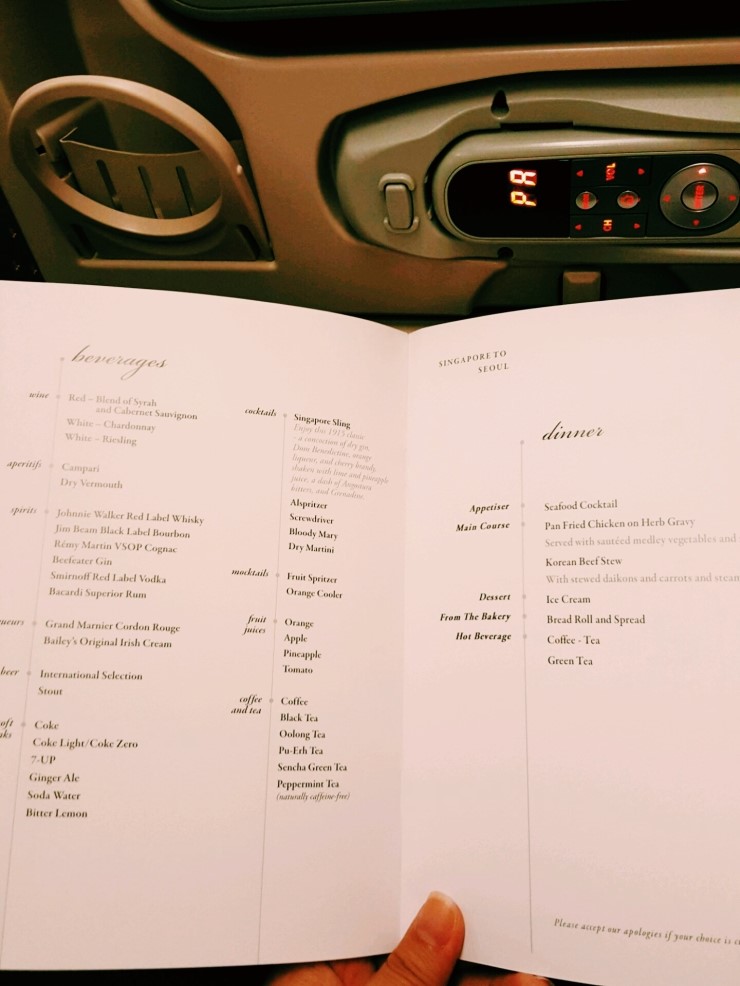 PA
VOL
CH
ENTER
beverages
wine
Red – Blend of Syrah
and Cabernet Sauvignon
White – Chardonnay
White – Riesling
aperitifs
Campari
Dry Vermouth
spirits
Johnnie Walker Red Label Whisky
Jim Beam Black Label Bourbon
Rémy Martin VSOP Cognac
Beefeater Gin
Smirnoff Red Label Vodka
Bacardi Superior Rum
Grand Marnier Cordon Rouge
Bailey's Original Irish Cream
beer
International Selection
Stout
Coke
Coke Light/Coke Zero
7-UP
Ginger Ale
Soda Water
Bitter Lemon
cocktails
Singapore Sling
Enjoy this 1915 classic
- a concoction of dry gin,
Dom Benedictine, orange
liqueur, and cherry brandy,
shaken with lime and pineapple
juice, a dash of Angostura
bitters, and Grenadine
Alspritzer
Screwdriver
Bloody Mary
Dry Martini
mocktails
Fruit Spritzer
Orange Cooler
fruit
juices
Orange
Apple
Pineapple
Tomato
coffee
and tea
Coffee
Black Tea
Oolong Tea
Pu-Erh Tea
Sencha Green Tea
Peppermint Tea
(naturally caffeine-free)
SINGAPORE TO
SEOUL
dinner
Appetiser
Seafood Cocktail
Main Course
Pan Fried Chicken on Herb Gravy
Served with sautéed medley vegetables and
Korean Beef Stew
With stewed daikons and carrots and
Dessert
Ice Cream
From The Bakery
Bread Roll and Spread
Hot Beverage
Coffee - Tea
Green Tea
Please accept our apologies if your choice is